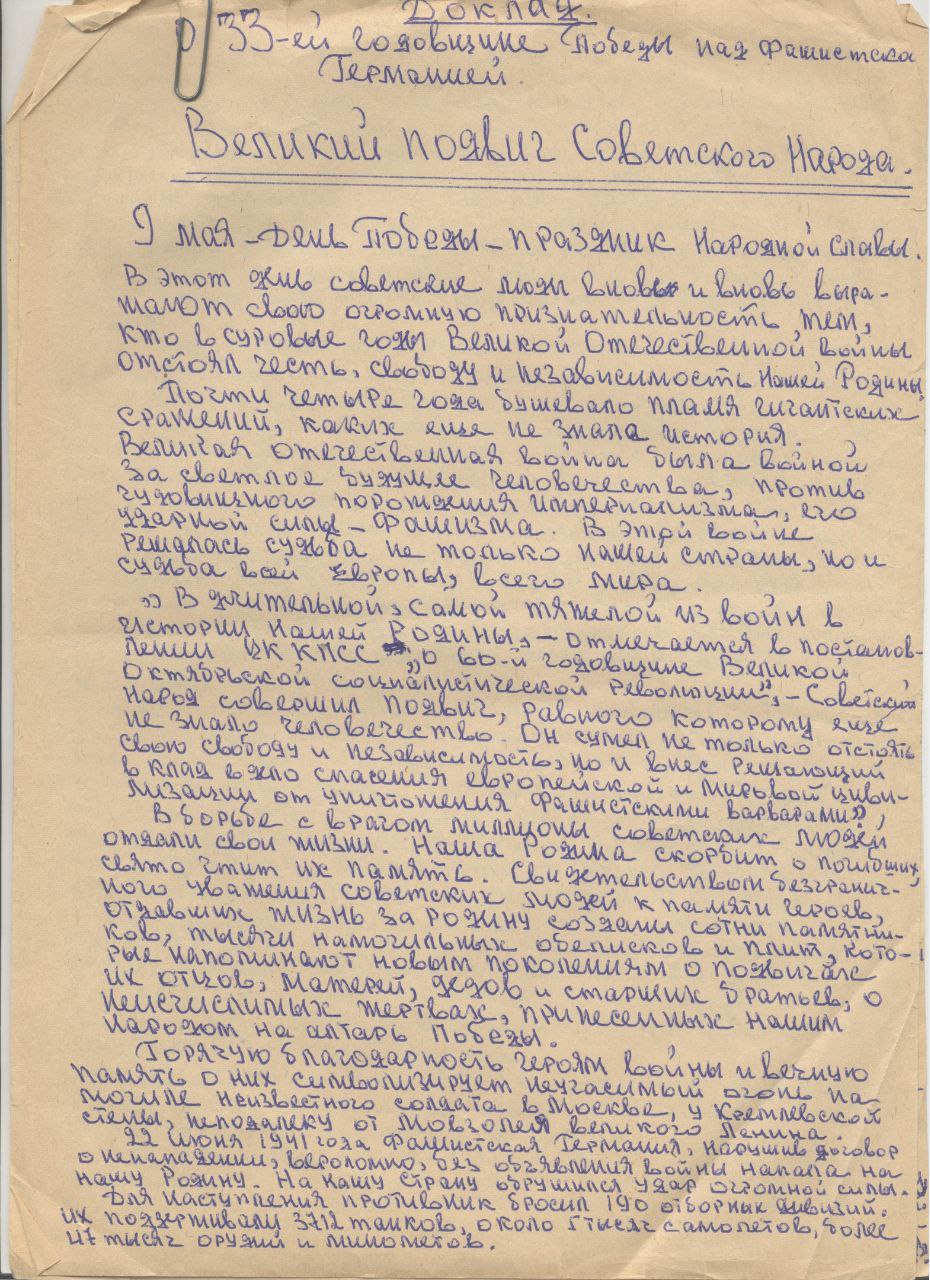 Доклад.
О 33-ей годовщине Победы над фашистско
Германией.
Великий подвиг Советского Народа.
9 мая – День Победы – праздник народной славы.
В этот день советские люди вновь и вновь выра-
жают свою огромную признательность тем,
кто в суровые годы Великой Отечественной войны
отстоял честь, свободу и независимость нашей Родины,
Почти четыре года бушевало пламя гигантских
сражений, каких еще не знала история.
Великая отечественная война была войной
за светлое будущее человечества, против
чудовищного порождения империализма, его
ударной силы – фашизма. В этой войне
решалась судьба не только нашей страны, но и
судьба всей Европы, всего мира.
„В длительной, самой тяжелой из войн в
истории нашей Родины, – отмечается в постанов-
лении ЦК КПСС „О 60-й годовщине Великой
Октябрьской социалистической революции", – Советский
народ совершил подвиг, равного которому еще
не знало человечество. Он сумел не только отстоять
свою свободу и независимость, но и внес решающий
вклад в дело спасения европейской и мировой циви-
лизации от уничтожения фашистскими варварами",
В борьбе с врагом миллионы советских людей
отдали свои жизни. Наша Родина скорбит о погибших,
свято чтит их память. Свидетельством безгранич-
ного уважения советских людей к памяти героев,
отдавших жизнь за Родину созданы сотни памятни-
ков, тысячи намогильных обелисков и плит, кото-
рые напоминают новым поколениям о подвигах
их отцов, матерей, дедов и старших братьев, о
неисчислимых жертвах, принесенных нашим
народом на алтарь Победы.
Горячую благодарность героям войны и вечную
память о них символизирует неугасимый огонь на
могиле неизвестного солдата в Москве, у Кремлевской
стены, неподалеку от Мавзолея великого Ленина.
22 июня 1941 года фашистская Германия, нарушив договор
о ненападении, вероломно, без объявления войны напала на
нашу Родину. На нашу страну обрушился удар огромной силы.
Для наступления противник бросил 190 отборных дивизий.
их поддерживали 3712 танков, около 5 тысяч самолетов, более
47 тысяч орудий и минометов.